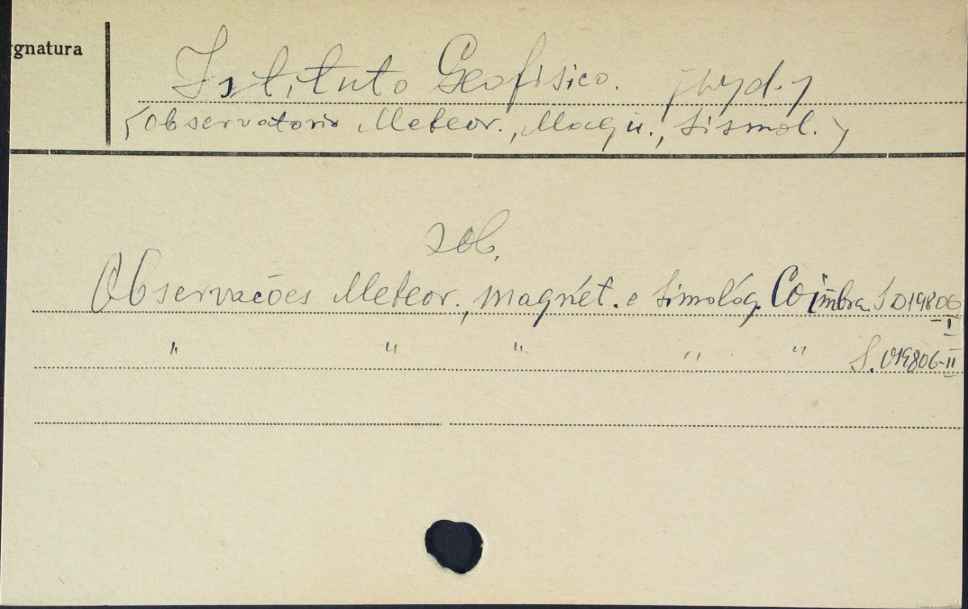 gnatura
Istituto Geofisico. /wyd./
(Observatorio Meteor., Magn., Sismol.)
zob.
Observações Meteor., magnét. e simológ. Coimbra S D19806
-I
" " " " " S. D19806-II